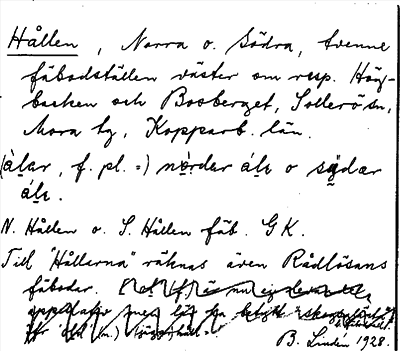 Hållen, Norra o. Södra, tvenne
fäbodställen väster om resp. Hög-
backen och Booberget, Sollerö sn,
Mora tg, Kopparb. län.
(ålar, f. pl. =) nørder åle o södær
åle.
N. Hållen o. S. Hållen fäb. GK.
Till "Hållerna" räknas även Rådlösans
fäbodar.
B. Lindén 1928.